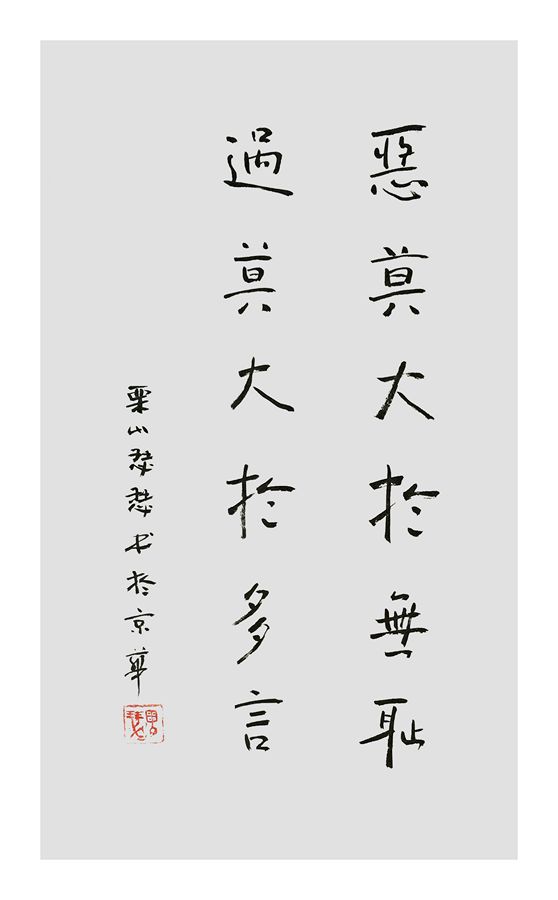 惡莫大於無耻
過莫大於多言
栗山瑟瑟书於京華